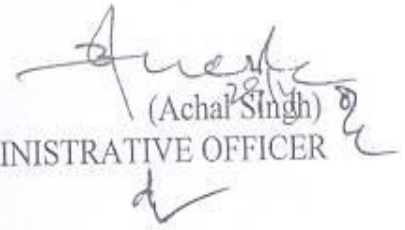 28/4
(Achal Singh)
INISTRATIVE OFFICER